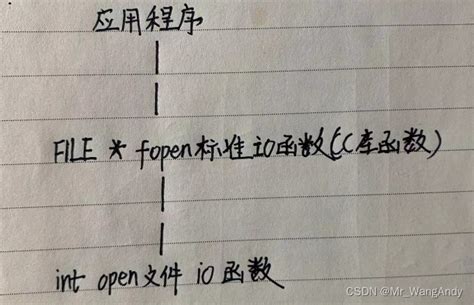 应用程序
FILE * fopen标准io函数(C库函数)
int open文件 io函数
CSDN @Mr_WangAndy